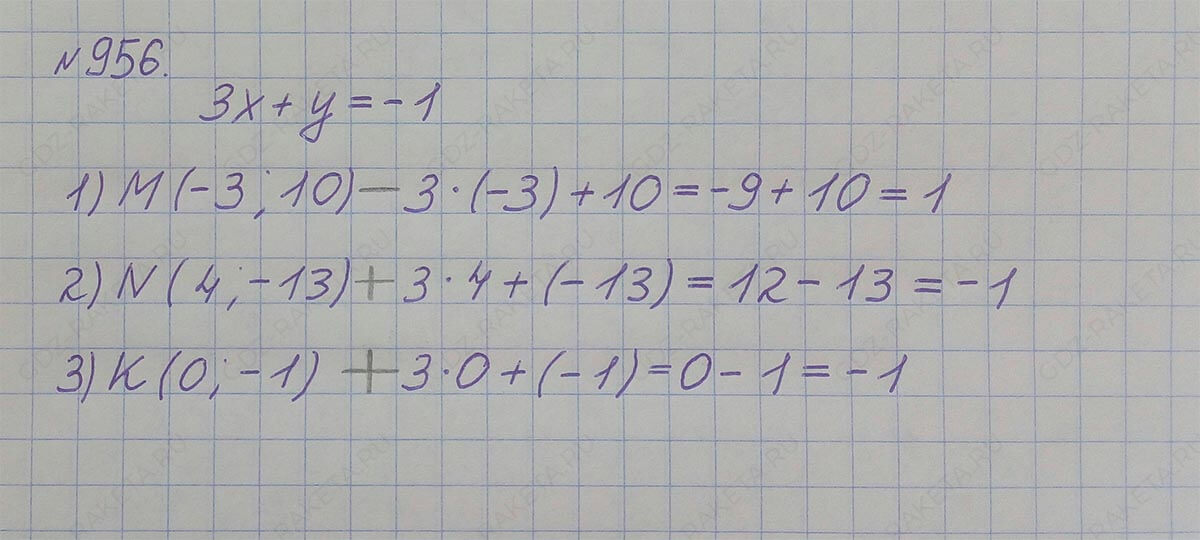 №956.
3x + y = -1
1) M (-3; 10) — 3·(-3) + 10 = -9 + 10 = 1
2) N (4; -13) + 3·4 + (-13) = 12 - 13 = -1
3) K (0; -1) + 3·0 + (-1) = 0 - 1 = -1